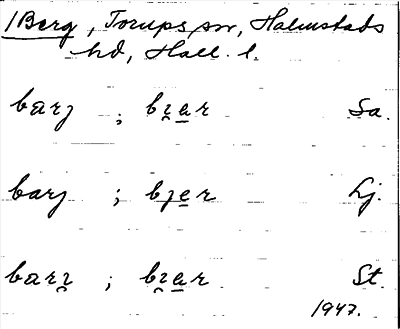 1 Berg, Torups sn, Halmstads
hd, Hall. l.
barȷ ; bɀ̯a̲r Sa.
barȷ ; bȷe̲r Lj.
barɀ̯ ; bɀ̯a̲r St.
1947.